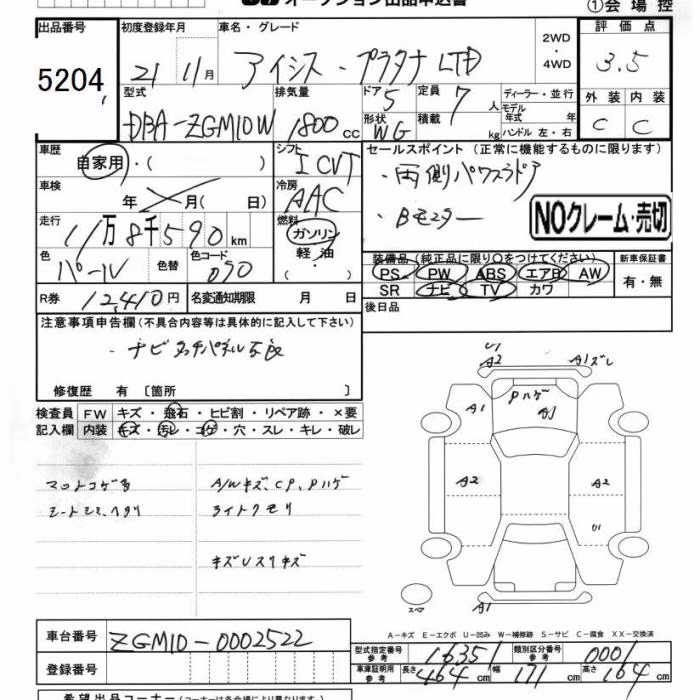 オークション出品申込書
①会場控
出品番号 初度登録年月 車名・グレード 2WD・4WD 評価点
5204 21 11月 アイシス・プラタナLTD 3.5
型式 排気量 ドア 5 定員 7人 ディーラー・並行 外装 内装
DBA-ZGM10W 1800cc 形状 WG 積載 kg モデル年式 年 ハンドル 左・右 C C
車歴 自家用・( ) シフト I CVT セールスポイント (正常に機能するものに限ります)
・両側パワスラドア
車検 年 月( 日) 冷房 AAC
・Bモニター
NOクレーム・売切
走行 11万8千590km 燃料 ガソリン 軽油・( )
装備品 (純正品に限り○をつけてください) 新車保証書
色 パール 色替 色コード 070
PS PW ABS エアB AW 有・無
SR ナビ TV カワ
R券 12,410円 名変通知期限 月 日 後日品
注意事項申告欄 (不具合内容等は具体的に記入して下さい)
・ナビタッチパネル不良
修復歴 有 〔箇所 〕
検査員 FW キズ・飛石・ヒビ割・リペア跡・×要
記入欄 内装 キズ・汚レ・コゲ・穴・スレ・キレ・破レ
マットコゲ多 A/Wキズ、CP、Pハゲ
シートシミ、ヘタリ ライトクモリ
キズUスリキズ
U1 A2 A1ズレ
Pハゲ
A1 A1
A2 A2
U1
スペア A1
A-キズ E-エクボ U-凹み W-補修跡 S-サビ C-腐食 XX-交換済
車台番号 ZGM10-0002522
型式指定番号 参考 16351 類別区分番号 参考 0001
登録番号 車庫証明用 参考 長さ 464cm 幅 171cm 高さ 164cm
希望出品コーナー (各会場により異なります)